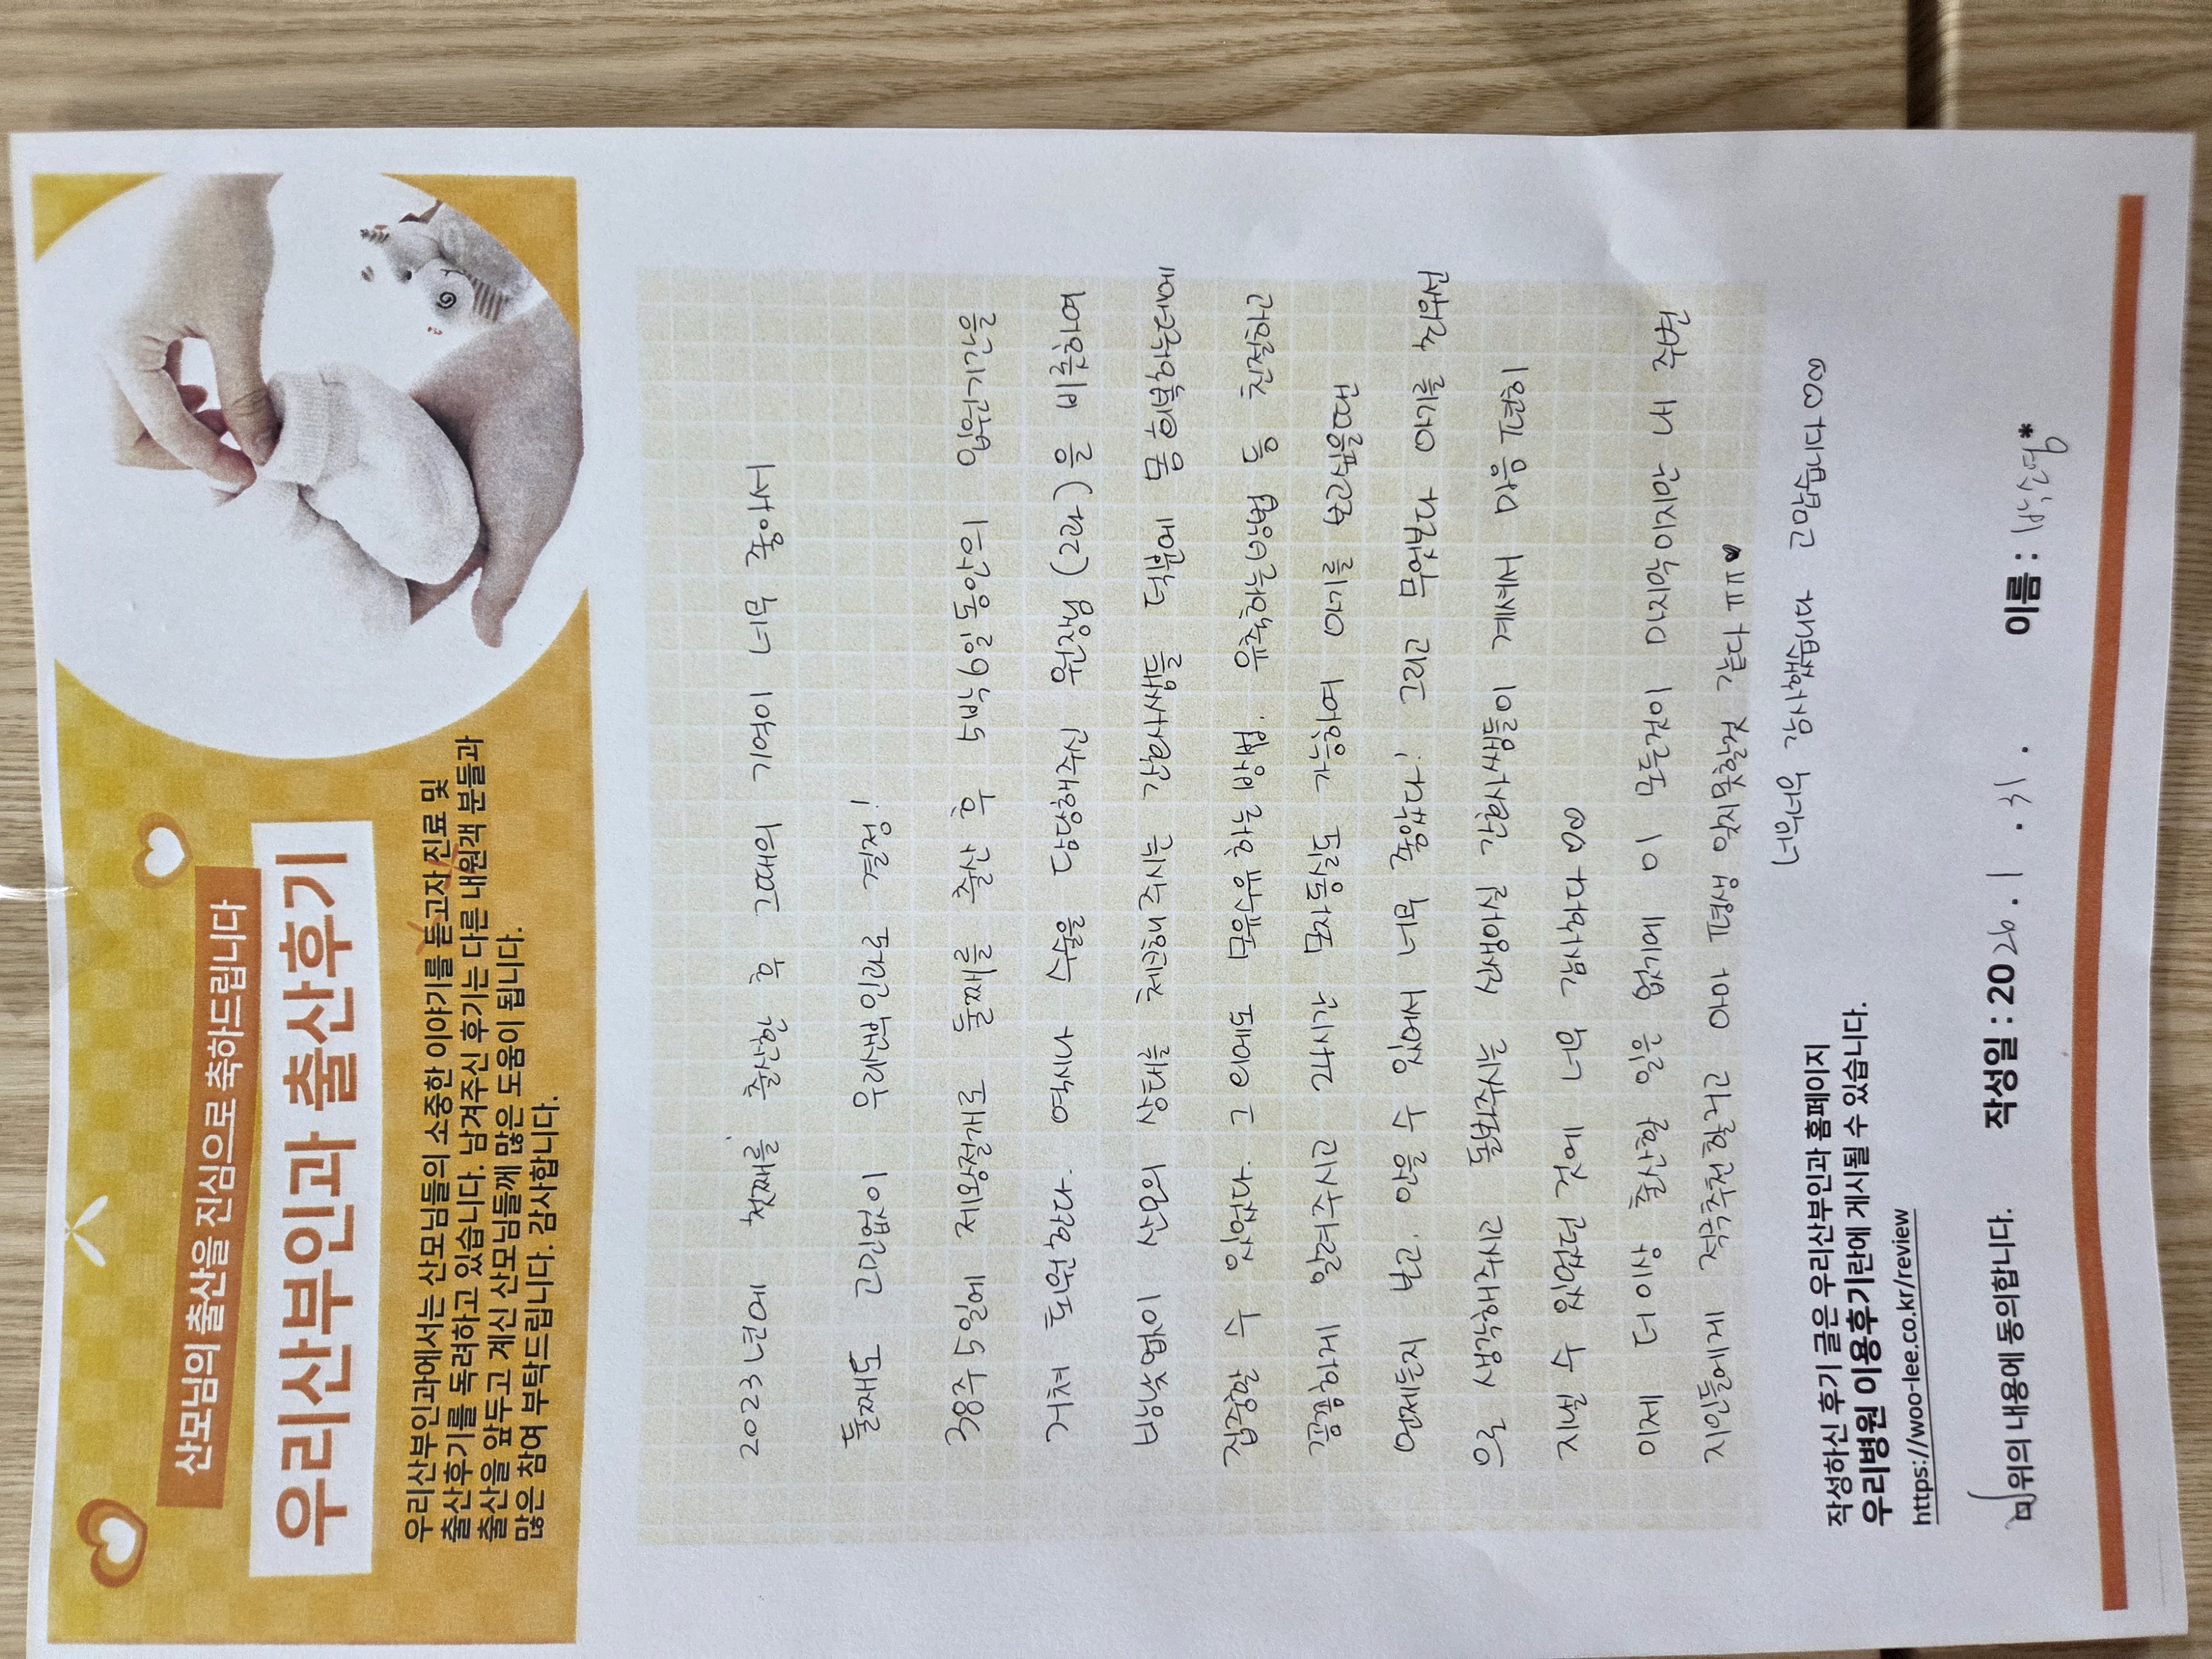 산모님의 출산을 진심으로 축하드립니다
우리산부인과 출산후기
우리산부인과에서는 산모님들의 소중한 이야기를 듣고자 진료 및
출산후기를 독려하고 있습니다. 남겨주신 후기는 다른 내원객 분들과
출산을 앞두고 계신 산모님들께 많은 도움이 됩니다.
많은 참여 부탁드립니다. 감사합니다.
2023년에 첫째를 출산한 후 그때의 기억이 너무 좋아서
둘째도 고민없이 우리산부인과로 결정!
38주5일에 제왕절개로 둘째를 출산 후 5박6일동안의 입원기간을
거쳐 퇴원한다. 역시나 수술을 담당해주신 원장님(라인)을 비롯하여
밤낮없이 산모의 상태를 체크해주시는 간호사쌤들 덕분에 몸 회복하는데에만
집중할 수 있었다. 그 외에도 모유수유하는방법, 유축하는방법 등 친절하게
꼼꼼하게 알려주시고 그사시간 포장동작도 가능하여 아이를 수고싶을때
언제든지 볼 수 있어서 너무 좋았다! 그리고 남았다 아이를 직접
으로 생각해주시고 돌봐주시는 신생아실 간호사쌤들이 계셔서 마음 편히
지낼 수 있었던 것에 너무 감사하다
이제 더이상 출산할 일은 없기에 이 모든것이 마지막이지만 내 주변
지인들에게 적극추천할거고 아마 평생 잊지못할것 같다 ㅠㅠ♥
너무너무 감사했습니다 고맙습니다
작성하신 후기 글은 우리산부인과 홈페이지
우리병원 이용후기란에 게시될 수 있습니다.
https://woo-lee.co.kr/review
위의 내용에 동의합니다. 작성일 : 2026. 1. 14. 이름 : *